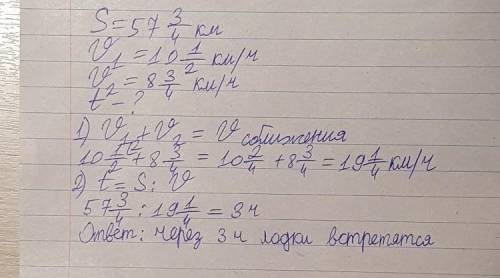 S = 57 3/4 км
V₁ = 10 1/2 км/ч
V₂ = 8 3/4 км/ч
t - ?
1) V₁ + V₂ = V сближения
10 1/2 + 8 3/4 = 10 2/4 + 8 3/4 = 19 1/4 км/ч
2) t = S : V
57 3/4 : 19 1/4 = 3ч
Ответ: через 3 ч лодки встретятся